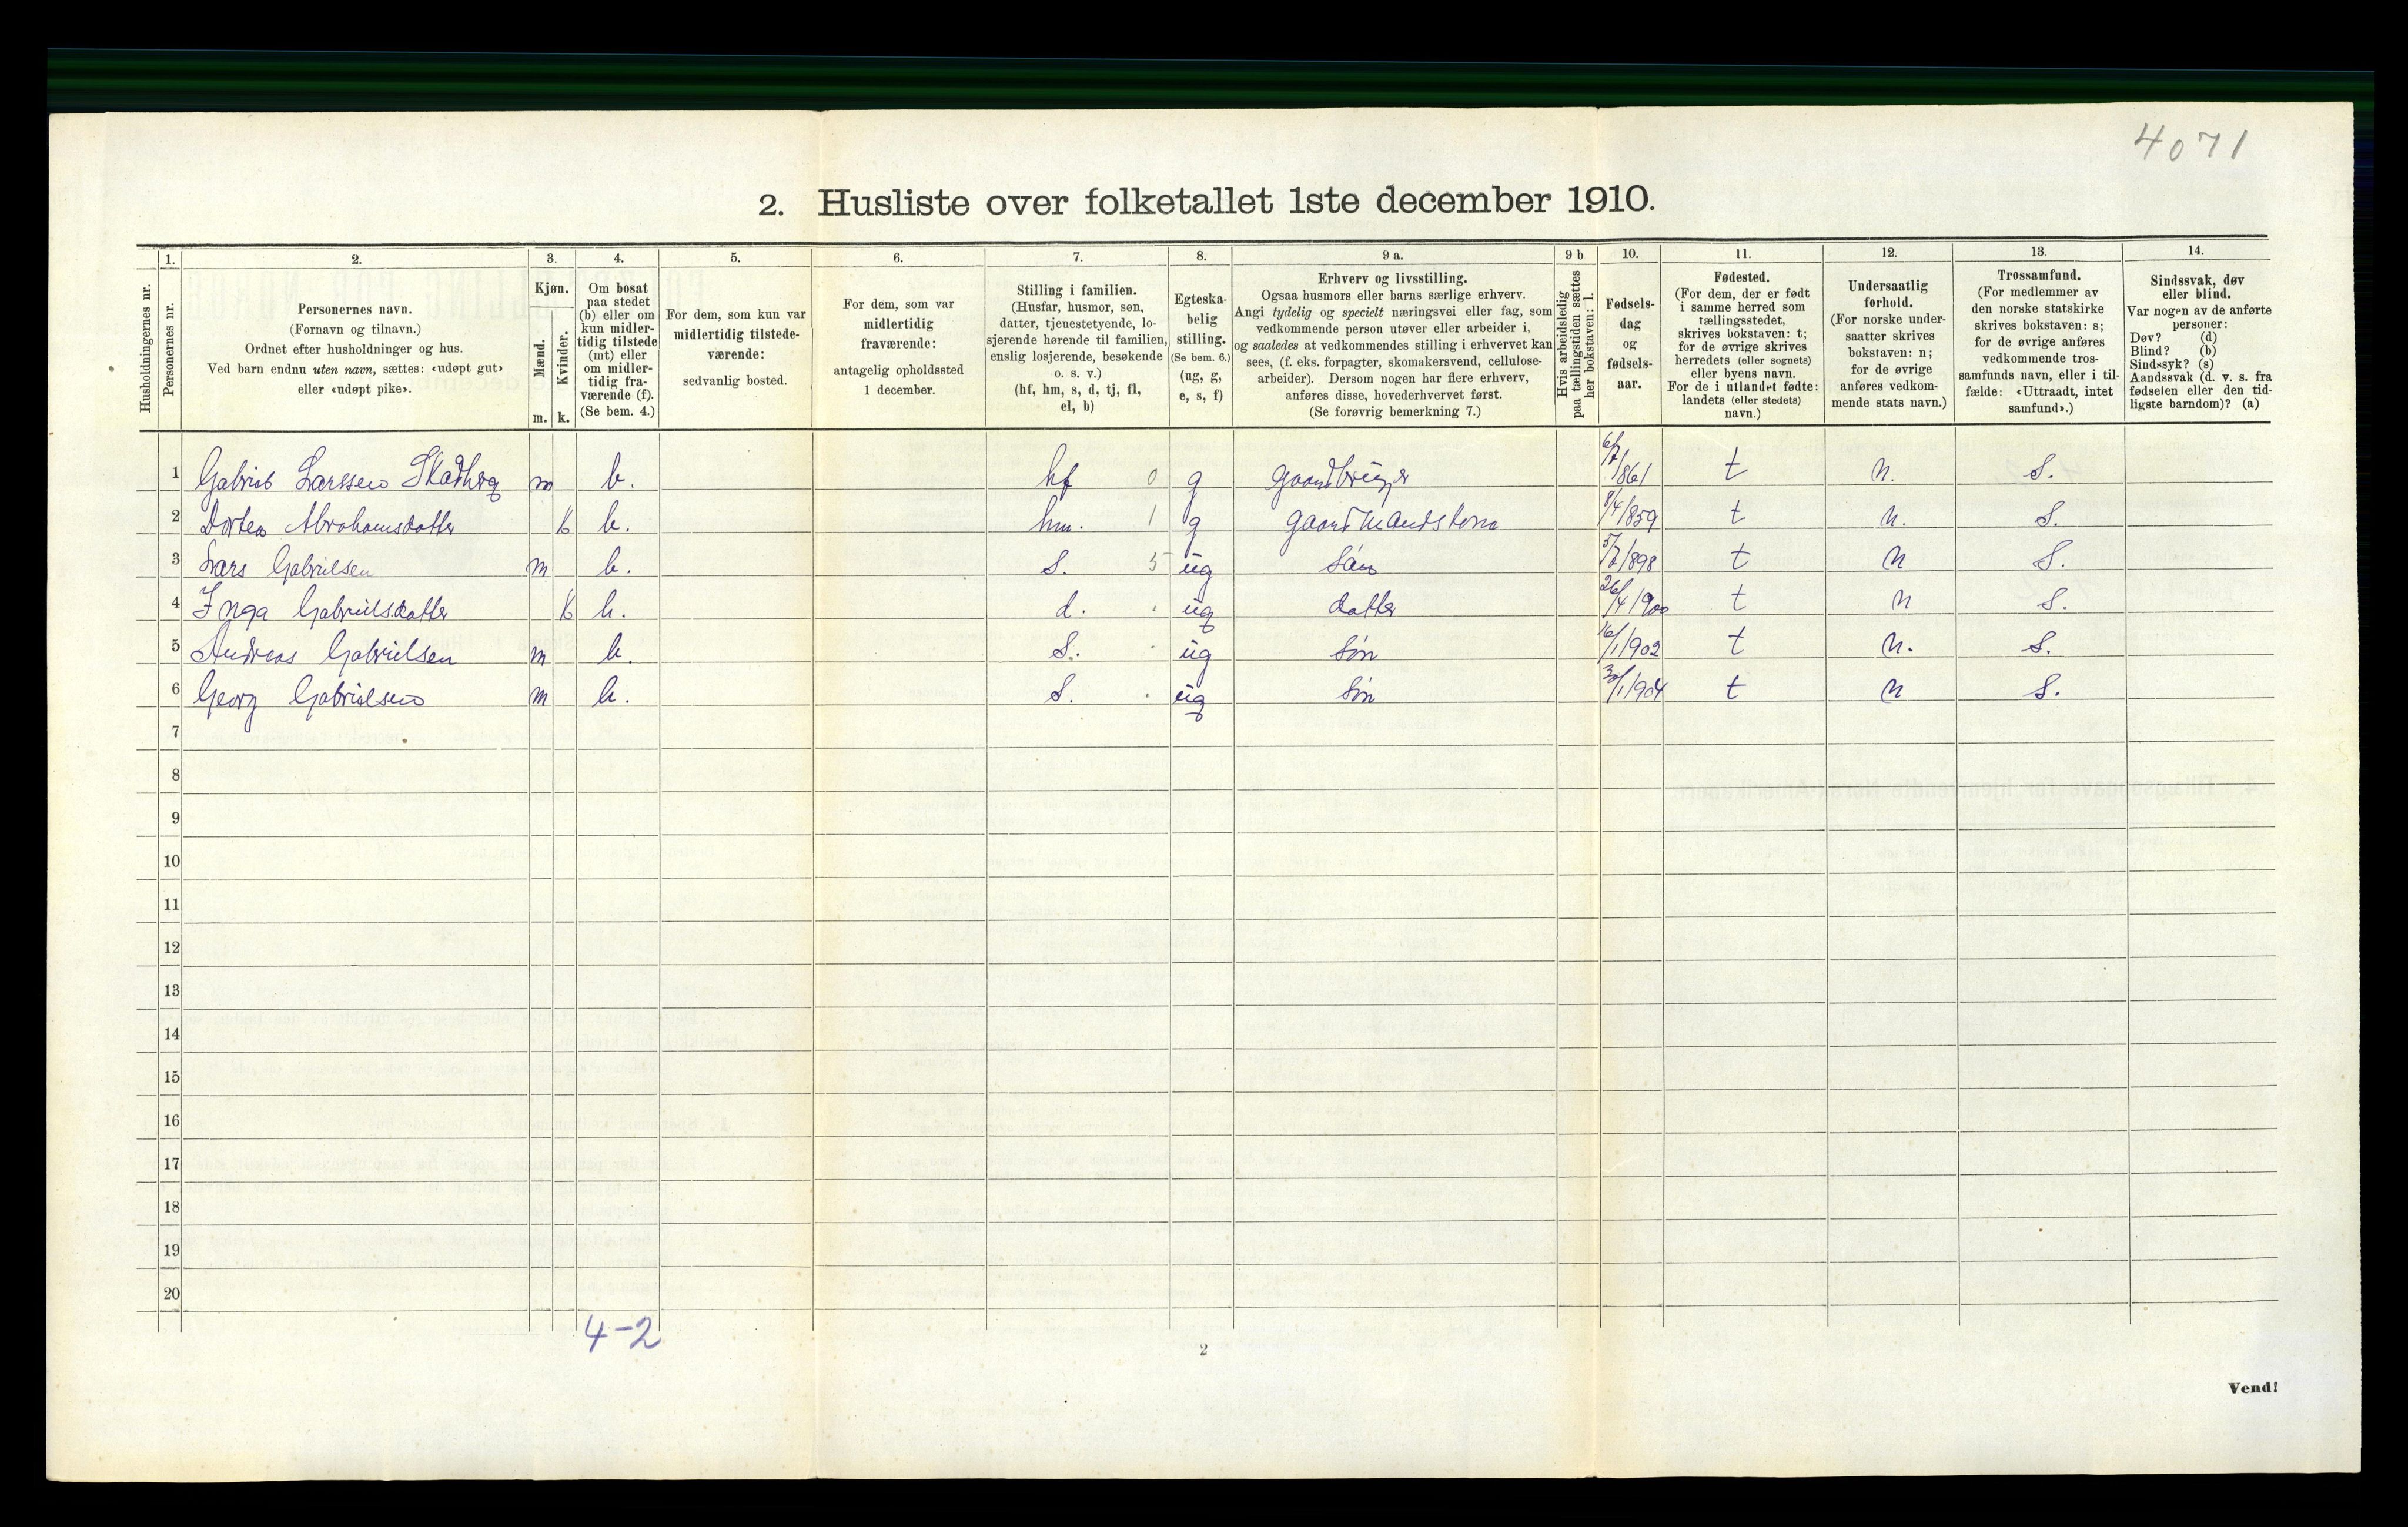 4071
2. Husliste over folketallet 1ste december 1910.
1. 2. 3. 4. 5. 6. 7. 8. 9 a. 9 b 10. 11. 12. 13. 14.
Husholdningernes nr.
Personernes nr.
Personernes navn.
(Fornavn og tilnavn.)
Ordnet efter husholdninger og hus.
Ved barn endnu uten navn, sættes: «udøpt gut»
eller «udøpt pike».
Kjøn.
Mænd.
Kvinder.
m. k.
Om bosat
paa stedet
(b) eller om
kun midler-
tidig tilstede
(mt) eller
om midler-
tidig fra-
værende (f).
(Se bem. 4.)
For dem, som kun var
midlertidig tilstede-
værende:
sedvanlig bosted.
For dem, som var
midlertidig
fraværende:
antagelig opholdssted
1 december.
Stilling i familien.
(Husfar, husmor, søn,
datter, tjenestetyende, lo-
sjerende hørende til familien,
enslig losjerende, besøkende
o. s. v.)
(hf, hm, s, d, tj, fl,
el, b)
Egteska-
belig
stilling.
(Se bem. 6.)
(ug, g,
e, s, f)
Erhverv og livsstilling.
Ogsaa husmors eller barns særlige erhverv.
Angi tydelig og specielt næringsvei eller fag, som
vedkommende person utøver eller arbeider i,
og saaledes at vedkommendes stilling i erhvervet kan
sees, (f. eks. forpagter, skomakersvend, cellulose-
arbeider). Dersom nogen har flere erhverv,
anføres disse, hovederhvervet først.
(Se forøvrig bemerkning 7.)
Hvis arbeidsledig
paa tællingstiden sættes
her bokstaven: l.
Fødsels-
dag
og
fødsels-
aar.
Fødested.
(For dem, der er født
i samme herred som
tællingsstedet,
skrives bokstaven: t;
for de øvrige skrives
herredets (eller sognets)
eller byens navn.
For de i utlandet fødte:
landets (eller stedets)
navn.)
Undersaatlig
forhold.
(For norske under-
saatter skrives
bokstaven: n;
for de øvrige
anføres vedkom-
mende stats navn.)
Trossamfund.
(For medlemmer av
den norske statskirke
skrives bokstaven: s;
for de øvrige anføres
vedkommende tros-
samfunds navn, eller i til-
fælde: «Uttraadt, intet
samfund».)
Sindssvak, døv
eller blind.
Var nogen av de anførte
personer:
Døv? (d)
Blind? (b)
Sindssyk? (s)
Aandssvak (d. v. s. fra
fødselen eller den tid-
ligste barndom)? (a)
1 Gabriel Larssen Skadberg m b. hf 0 g gaardbruger 6/7/861 t n. S.
2 Dortea Abrahamsdatter k b. hm. 1 g gaardmandskona 8/4/859 t n. S.
3 Lars Gabrielsen m b. S. 5 ug søn 5/7/898 t n S.
4 Inga Gabrielsdatter k b. d. . ug datter 26/4/900 t n S.
5 Andreas Gabrielsen m b. S. . ug søn 16/1/902 t n. S.
6 Georg Gabrielsen m b. S. . ug søn 30/1/904 t n S.
7
8
9
10
11
12
13
14
15
16
17
18
19
20
4-2
2
Vend!